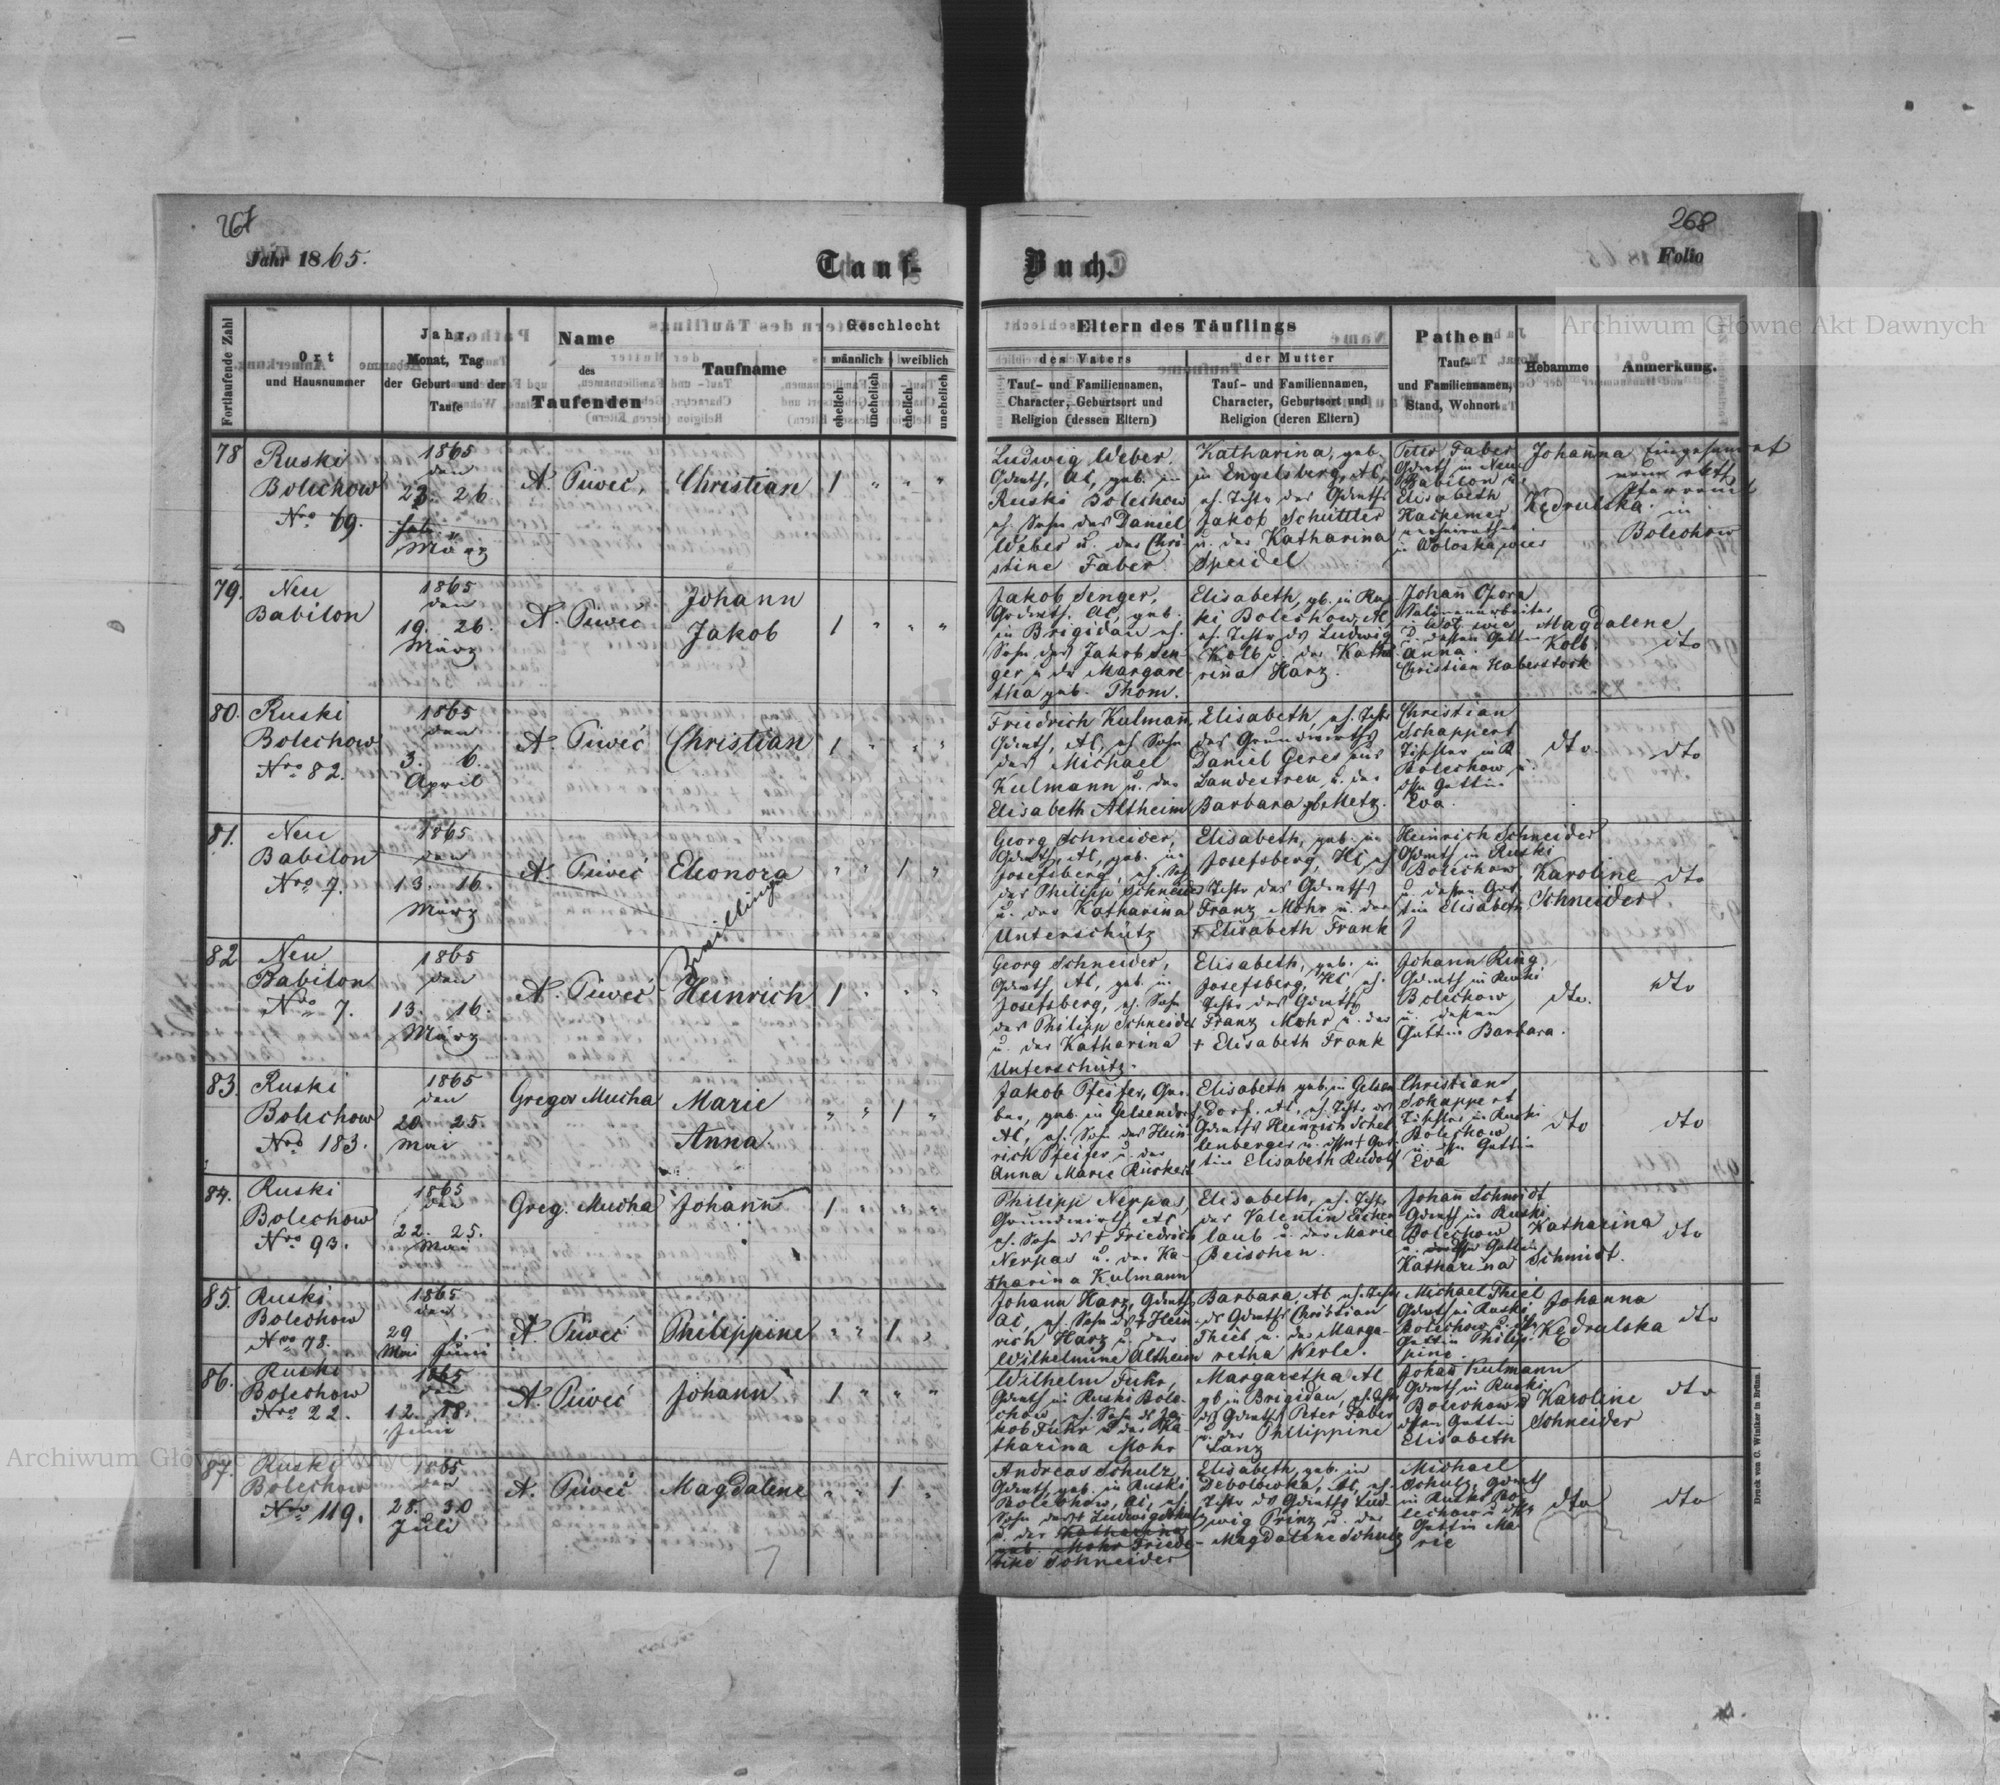 267
268
Jahr 1865.
Tauf-
Buch.
Folio
Archiwum Główne Akt Dawnych
Fortlaufende Zahl
Ort
und Hausnummer
Jahr,
Monat, Tag
der Geburt und der
Taufe
Name
des
Taufenden
Taufname
Geschlecht
männlich
weiblich
ehelich
unehelich
ehelich
unehelich
Eltern des Täuflings
des Vaters
Tauf- und Familiennamen,
Character, Geburtsort und
Religion (dessen Eltern)
der Mutter
Tauf- und Familiennamen,
Character, Geburtsort und
Religion (deren Eltern)
Pathen
Tauf-
und Familiennamen,
Stand, Wohnort
Hebamme
Anmerkung.
78
Ruski
Bolechow
Nro 69.
1865
den
26
März
A. Piweć,
Christian
1 " " "
Ludwig Weber.
Ruski Bolechow
Sohn des Daniel
Weber u. der Chri-
stine Faber
Katharina, geb.
in Engelsberg, AC,
Jakob Schüttler
u. der Katharina
Speidel
Peter Faber
Grdwth in Neu
Babilon u.
Elisabeth
Hackemer
in Woloskawies
Johanna
Kędrulska
Pfarramt
in
Bolechow
79.
Neu
Babilon
1865
den
19. 26.
März
A. Piweć
Johann
Jakob
1 " " "
Jakob Senger,
Grdwth. AC, geb.
in Brigidau
Sohn des Jakob Sen-
ger u. der Margare-
tha geb. Thom.
Elisabeth, gb. in Rus-
ki Bolechow, AC
Tchtr ds Ludwig
Kolb u. der Katha-
rina Harz.
Johann Opora
Salinenarbeiter
u. dessen Gattin
Anna.
Christian Haberstock
Magdalene
Kolb
dto
80.
Ruski
Bolechow
Nro 82.
1865
den
3. 6.
April
A. Piweć
Christian
1 " " "
Friedrich Kulmann,
Grdwth, AC, Sohn
des Michael
Kulmann u. der
Elisabeth Altheim
Elisabeth, Tchtr
des Grundwirths
Daniel Geres aus
Landestreu, u. der
Barbara gb. Metz.
Christian
Schappert
Bolechow u.
Gattin
Eva.
dto.
dto
81.
Neu
Babilon
Nro 7.
1865
den
13. 16.
März
A. Piweć
Eleonora
Zwillinge
" " 1 "
Georg Schneider,
Grdwth, AC, geb. in
Josefsberg,
des Philipp Schneider
u. der Katharina
Unterschütz
Elisabeth, geb. in
Josefsberg, HC
Tchtr des Grdwths
Franz Mohr u. der
+ Elisabeth Frank
Heinrich Schneider
Grdwth in Ruski
Bolechow
u. dessen Gat
tin Elisabeth
Karoline
Schneider
dto
82
Neu
Babilon
Nro 7.
1865
den
13. 16.
März
A. Piweć
Heinrich
1 " " "
Georg Schneider,
Grdwth, AC, geb. in
Josefsberg, Sohn
des Philipp Schneider
u. der Katharina
Unterschütz.
Elisabeth, geb. in
Josefsberg, HC,
Tchtr des Grdwths
Franz Mohr u. der
+ Elisabeth Frank
Johann Ring,
Grdwth in Ruski
Bolechow
u. dessen
Gattin Barbara.
dto.
dto
83.
Ruski
Bolechow
Nro 183.
1865
den
20. 25.
Mai
Gregor Mucha
Marie
Anna
" " 1 "
Jakob Pfeifer,
geb. in Gelsendorf,
AC, Sohn des Hein
rich Pfeifer u. der
Anna Marie Rückert
Elisabeth geb. in Gelsen
dorf. AC, Tchtr des
Grdwths Heinrich Schel
lenberger u.
tin Elisabeth Rudolf
Christian
Schappert
in Ruski
Bolechow
Gattin
Eva
dto
dto
84.
Ruski
Bolechow
Nro 93.
1865
den
22. 25.
Mai
Greg. Mucha
Johann
1 " " "
Philipp Nerpas,
Grundwirth, AC,
Sohn ds + Friedrich
Nerpas u. der Ka-
tharina Kulmann
Elisabeth, Tchtr
des Valentin Eichen
laub u. der Marie
Beischen.
Johann Schmidt
Grdwth in Ruski
Bolechow
Gattin
Katharina
Katharina
Schmidt.
dto
85.
Ruski
Bolechow
Nro 78.
1865
den
29 1.
Mai Juni
A. Piweć
Philippine
" " 1 "
Johann Harz, Grdwth
AC, Sohn ds + Hein
rich Harz u. der
Wilhelmine Altheim
Barbara, AC Tchtr
ds Grdwths Christian
Thiel u. der Marga-
retha Werle.
Michael Thiel
Grdwth in Ruski
Bolechow
Gattin Philip-
pine.
Johanna
Kędrulska
dto
86.
Ruski
Bolechow
Nro 22.
1865
den
12. 18.
Juni
A. Piweć
Johann
1 " " "
Wilhelm Fuhr,
Grdwth in Ruski Bole-
chow Sohn ds Ja-
kob Fuhr u. der Ka-
tharina Mohr
Margaretha AC
gb in Brigidau, Tchtr
ds Grdwths Peter Faber
u. der Philippine
Lanz
Johann Kulmann
Grdwth in Ruski
Bolechow u.
dessen Gattin
Elisabeth
Karoline
Schneider
dto
87.
Ruski
Bolechow
Nro 119.
1865
den
28. 30
Juli
A. Piweć
Magdalene
" " 1 "
Andreas Schulz
Grdwth geb. in Ruski
Bolechow, AC,
Sohn des + Ludwig Schulz
u. der Katharina
geb. Mohr Friede-
rike Schneider
Elisabeth, geb. in
Debolowka, AC,
Tchtr ds Grdwths Lud-
wig Prinz u. der
Magdalene Schulz
Michael
Schulz, Grdwth
in Ruski Bo-
lechow
Gattin Ma-
rie
dto
dto
Druck von C. Winiker in Brünn.
Archiwum Główne Akt Dawnych